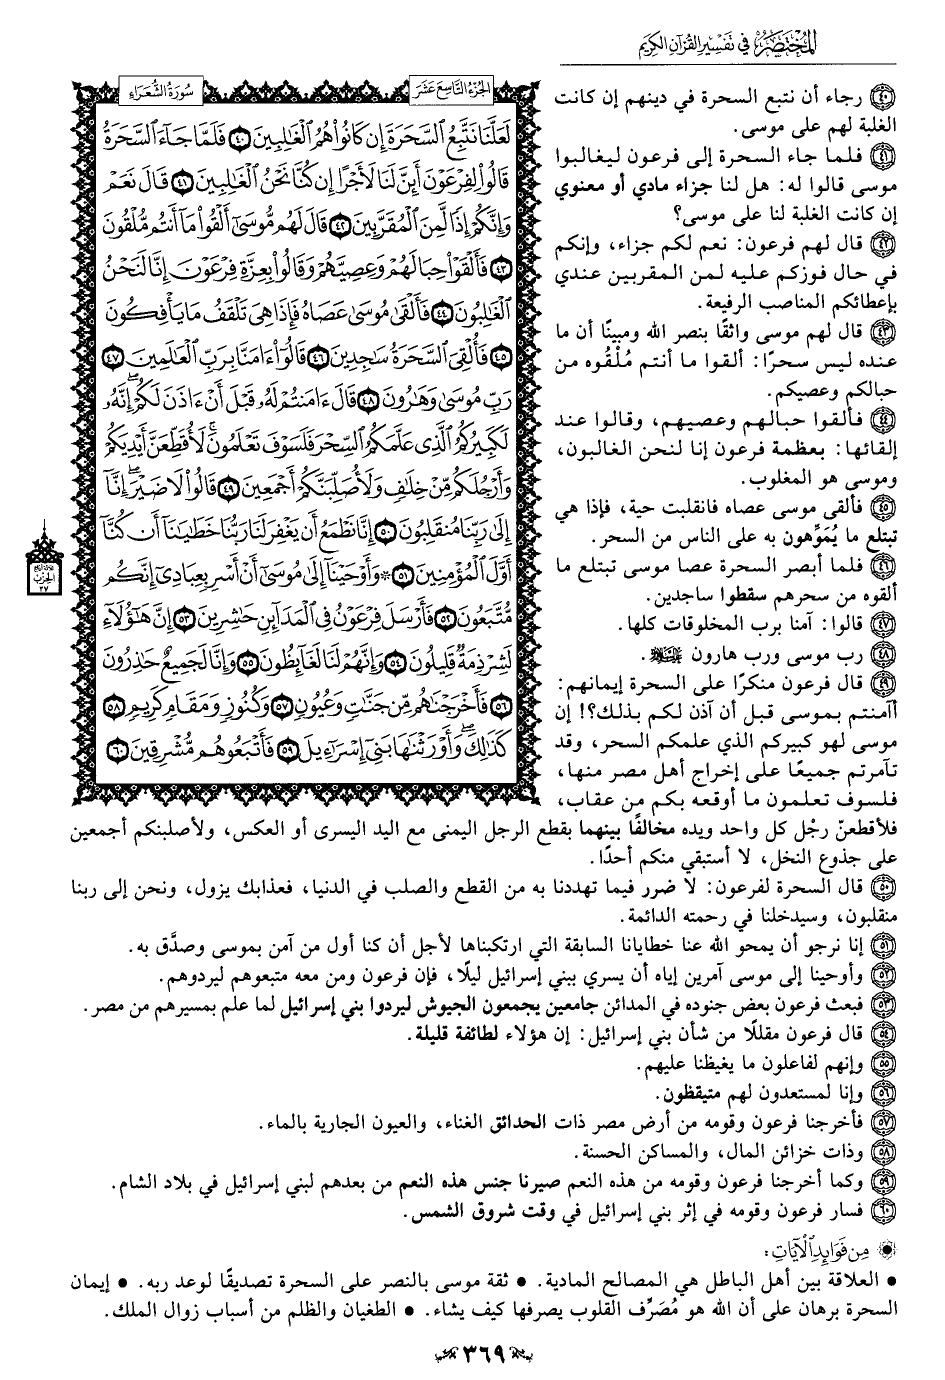 المختصر في تفسير القرآن الكريم
الجزء التاسع عشر
سورة الشعراء
لَعَلَّنَا نَتَّبِعُ ٱلسَّحَرَةَ إِن كَانُوا۟ هُمُ ٱلْغَٰلِبِينَ ٤٠ فَلَمَّا جَآءَ ٱلسَّحَرَةُ
قَالُوا۟ لِفِرْعَوْنَ أَئِنَّ لَنَا لَأَجْرًا إِن كُنَّا نَحْنُ ٱلْغَٰلِبِينَ ٤١ قَالَ نَعَمْ
وَإِنَّكُمْ إِذًا لَّمِنَ ٱلْمُقَرَّبِينَ ٤٢ قَالَ لَهُم مُّوسَىٰٓ أَلْقُوا۟ مَآ أَنتُم مُّلْقُونَ
٤٣ فَأَلْقَوْا۟ حِبَالَهُمْ وَعِصِيَّهُمْ وَقَالُوا۟ بِعِزَّةِ فِرْعَوْنَ إِنَّا لَنَحْنُ
ٱلْغَٰلِبُونَ ٤٤ فَأَلْقَىٰ مُوسَىٰ عَصَاهُ فَإِذَا هِىَ تَلْقَفُ مَا يَأْفِكُونَ
٤٥ فَأُلْقِىَ ٱلسَّحَرَةُ سَٰجِدِينَ ٤٦ قَالُوٓا۟ ءَامَنَّا بِرَبِّ ٱلْعَٰلَمِينَ ٤٧
رَبِّ مُوسَىٰ وَهَٰرُونَ ٤٨ قَالَ ءَامَنتُمْ لَهُۥ قَبْلَ أَنْ ءَاذَنَ لَكُمْ ۖ إِنَّهُۥ
لَكَبِيرُكُمُ ٱلَّذِى عَلَّمَكُمُ ٱلسِّحْرَ فَلَسَوْفَ تَعْلَمُونَ ۚ لَأُقَطِّعَنَّ أَيْدِيَكُمْ
وَأَرْجُلَكُم مِّنْ خِلَٰفٍ وَلَأُصَلِّبَنَّكُمْ أَجْمَعِينَ ٤٩ قَالُوا۟ لَا ضَيْرَ ۖ إِنَّآ
إِلَىٰ رَبِّنَا مُنقَلِبُونَ ٥٠ إِنَّا نَطْمَعُ أَن يَغْفِرَ لَنَا رَبُّنَا خَطَٰيَٰنَآ أَن كُنَّآ
أَوَّلَ ٱلْمُؤْمِنِينَ ٥١ ۞ وَأَوْحَيْنَآ إِلَىٰ مُوسَىٰٓ أَنْ أَسْرِ بِعِبَادِىٓ إِنَّكُم
مُّتَّبَعُونَ ٥٢ فَأَرْسَلَ فِرْعَوْنُ فِى ٱلْمَدَآئِنِ حَٰشِرِينَ ٥٣ إِنَّ هَٰٓؤُلَآءِ
لَشِرْذِمَةٌ قَلِيلُونَ ٥٤ وَإِنَّهُمْ لَنَا لَغَآئِظُونَ ٥٥ وَإِنَّا لَجَمِيعٌ حَٰذِرُونَ
٥٦ فَأَخْرَجْنَٰهُم مِّن جَنَّٰتٍ وَعُيُونٍ ٥٧ وَكُنُوزٍ وَمَقَامٍ كَرِيمٍ ٥٨
كَذَٰلِكَ ۖ وَأَوْرَثْنَٰهَا بَنِىٓ إِسْرَٰٓءِيلَ ٥٩ فَأَتْبَعُوهُم مُّشْرِقِينَ ٦٠
الحزب
٣٧
٤٠ رجاء أن نتبع السحرة في دينهم إن كانت
الغلبة لهم على موسى.
٤١ فلما جاء السحرة إلى فرعون ليغالبوا
موسى قالوا له: هل لنا جزاء مادي أو معنوي
إن كانت الغلبة لنا على موسى؟
٤٢ قال لهم فرعون: نعم لكم جزاء، وإنكم
في حال فوزكم عليه لمن المقربين عندي
بإعطائكم المناصب الرفيعة.
٤٣ قال لهم موسى واثقًا بنصر الله ومبينًا أن ما
عنده ليس سحرًا: ألقوا ما أنتم مُلْقُوه من
حبالكم وعصيكم.
٤٤ فألقوا حبالهم وعصيهم، وقالوا عند
إلقائها: بعظمة فرعون إنا لنحن الغالبون،
وموسى هو المغلوب.
٤٥ فألقى موسى عصاه فانقلبت حية، فإذا هي
تبتلع ما يُمَوِّهون به على الناس من السحر.
٤٦ فلما أبصر السحرة عصا موسى تبتلع ما
ألقوه من سحرهم سقطوا ساجدين.
٤٧ قالوا: آمنا برب المخلوقات كلها.
٤٨ رب موسى ورب هارون .
٤٩ قال فرعون منكرًا على السحرة إيمانهم:
أآمنتم بموسى قبل أن آذن لكم بذلك؟! إن
موسى لهو كبيركم الذي علمكم السحر، وقد
تآمرتم جميعًا على إخراج أهل مصر منها،
فلسوف تعلمون ما أوقعه بكم من عقاب،
فلأقطعنّ رجْل كل واحد ويده مخالفًا بينهما بقطع الرجل اليمنى مع اليد اليسرى أو العكس، ولأصلبنكم أجمعين
على جذوع النخل، لا أستبقي منكم أحدًا.
٥٠ قال السحرة لفرعون: لا ضرر فيما تهددنا به من القطع والصلب في الدنيا، فعذابك يزول، ونحن إلى ربنا
منقلبون، وسيدخلنا في رحمته الدائمة.
٥١ إنا نرجو أن يمحو الله عنا خطايانا السابقة التي ارتكبناها لأجل أن كنا أول من آمن بموسى وصدَّق به.
٥٢ وأوحينا إلى موسى آمرين إياه أن يسري ببني إسرائيل ليلًا، فإن فرعون ومن معه متبعوهم ليردوهم.
٥٣ فبعث فرعون بعض جنوده في المدائن جامعين يجمعون الجيوش ليردوا بني إسرائيل لما علم بمسيرهم من مصر.
٥٤ قال فرعون مقللًا من شأن بني إسرائيل: إن هؤلاء لطائفة قليلة.
٥٥ وإنهم لفاعلون ما يغيظنا عليهم.
٥٦ وإنا لمستعدون لهم متيقظون.
٥٧ فأخرجنا فرعون وقومه من أرض مصر ذات الحدائق الغناء، والعيون الجارية بالماء.
٥٨ وذات خزائن المال، والمساكن الحسنة.
٥٩ وكما أخرجنا فرعون وقومه من هذه النعم صيرنا جنس هذه النعم من بعدهم لبني إسرائيل في بلاد الشام.
٦٠ فسار فرعون وقومه في إثر بني إسرائيل في وقت شروق الشمس.
من فوائد الآيات:
• العلاقة بين أهل الباطل هي المصالح المادية. • ثقة موسى بالنصر على السحرة تصديقًا لوعد ربه. • إيمان
السحرة برهان على أن الله هو مُصَرِّف القلوب يصرفها كيف يشاء. • الطغيان والظلم من أسباب زوال الملك.
٣٦٩